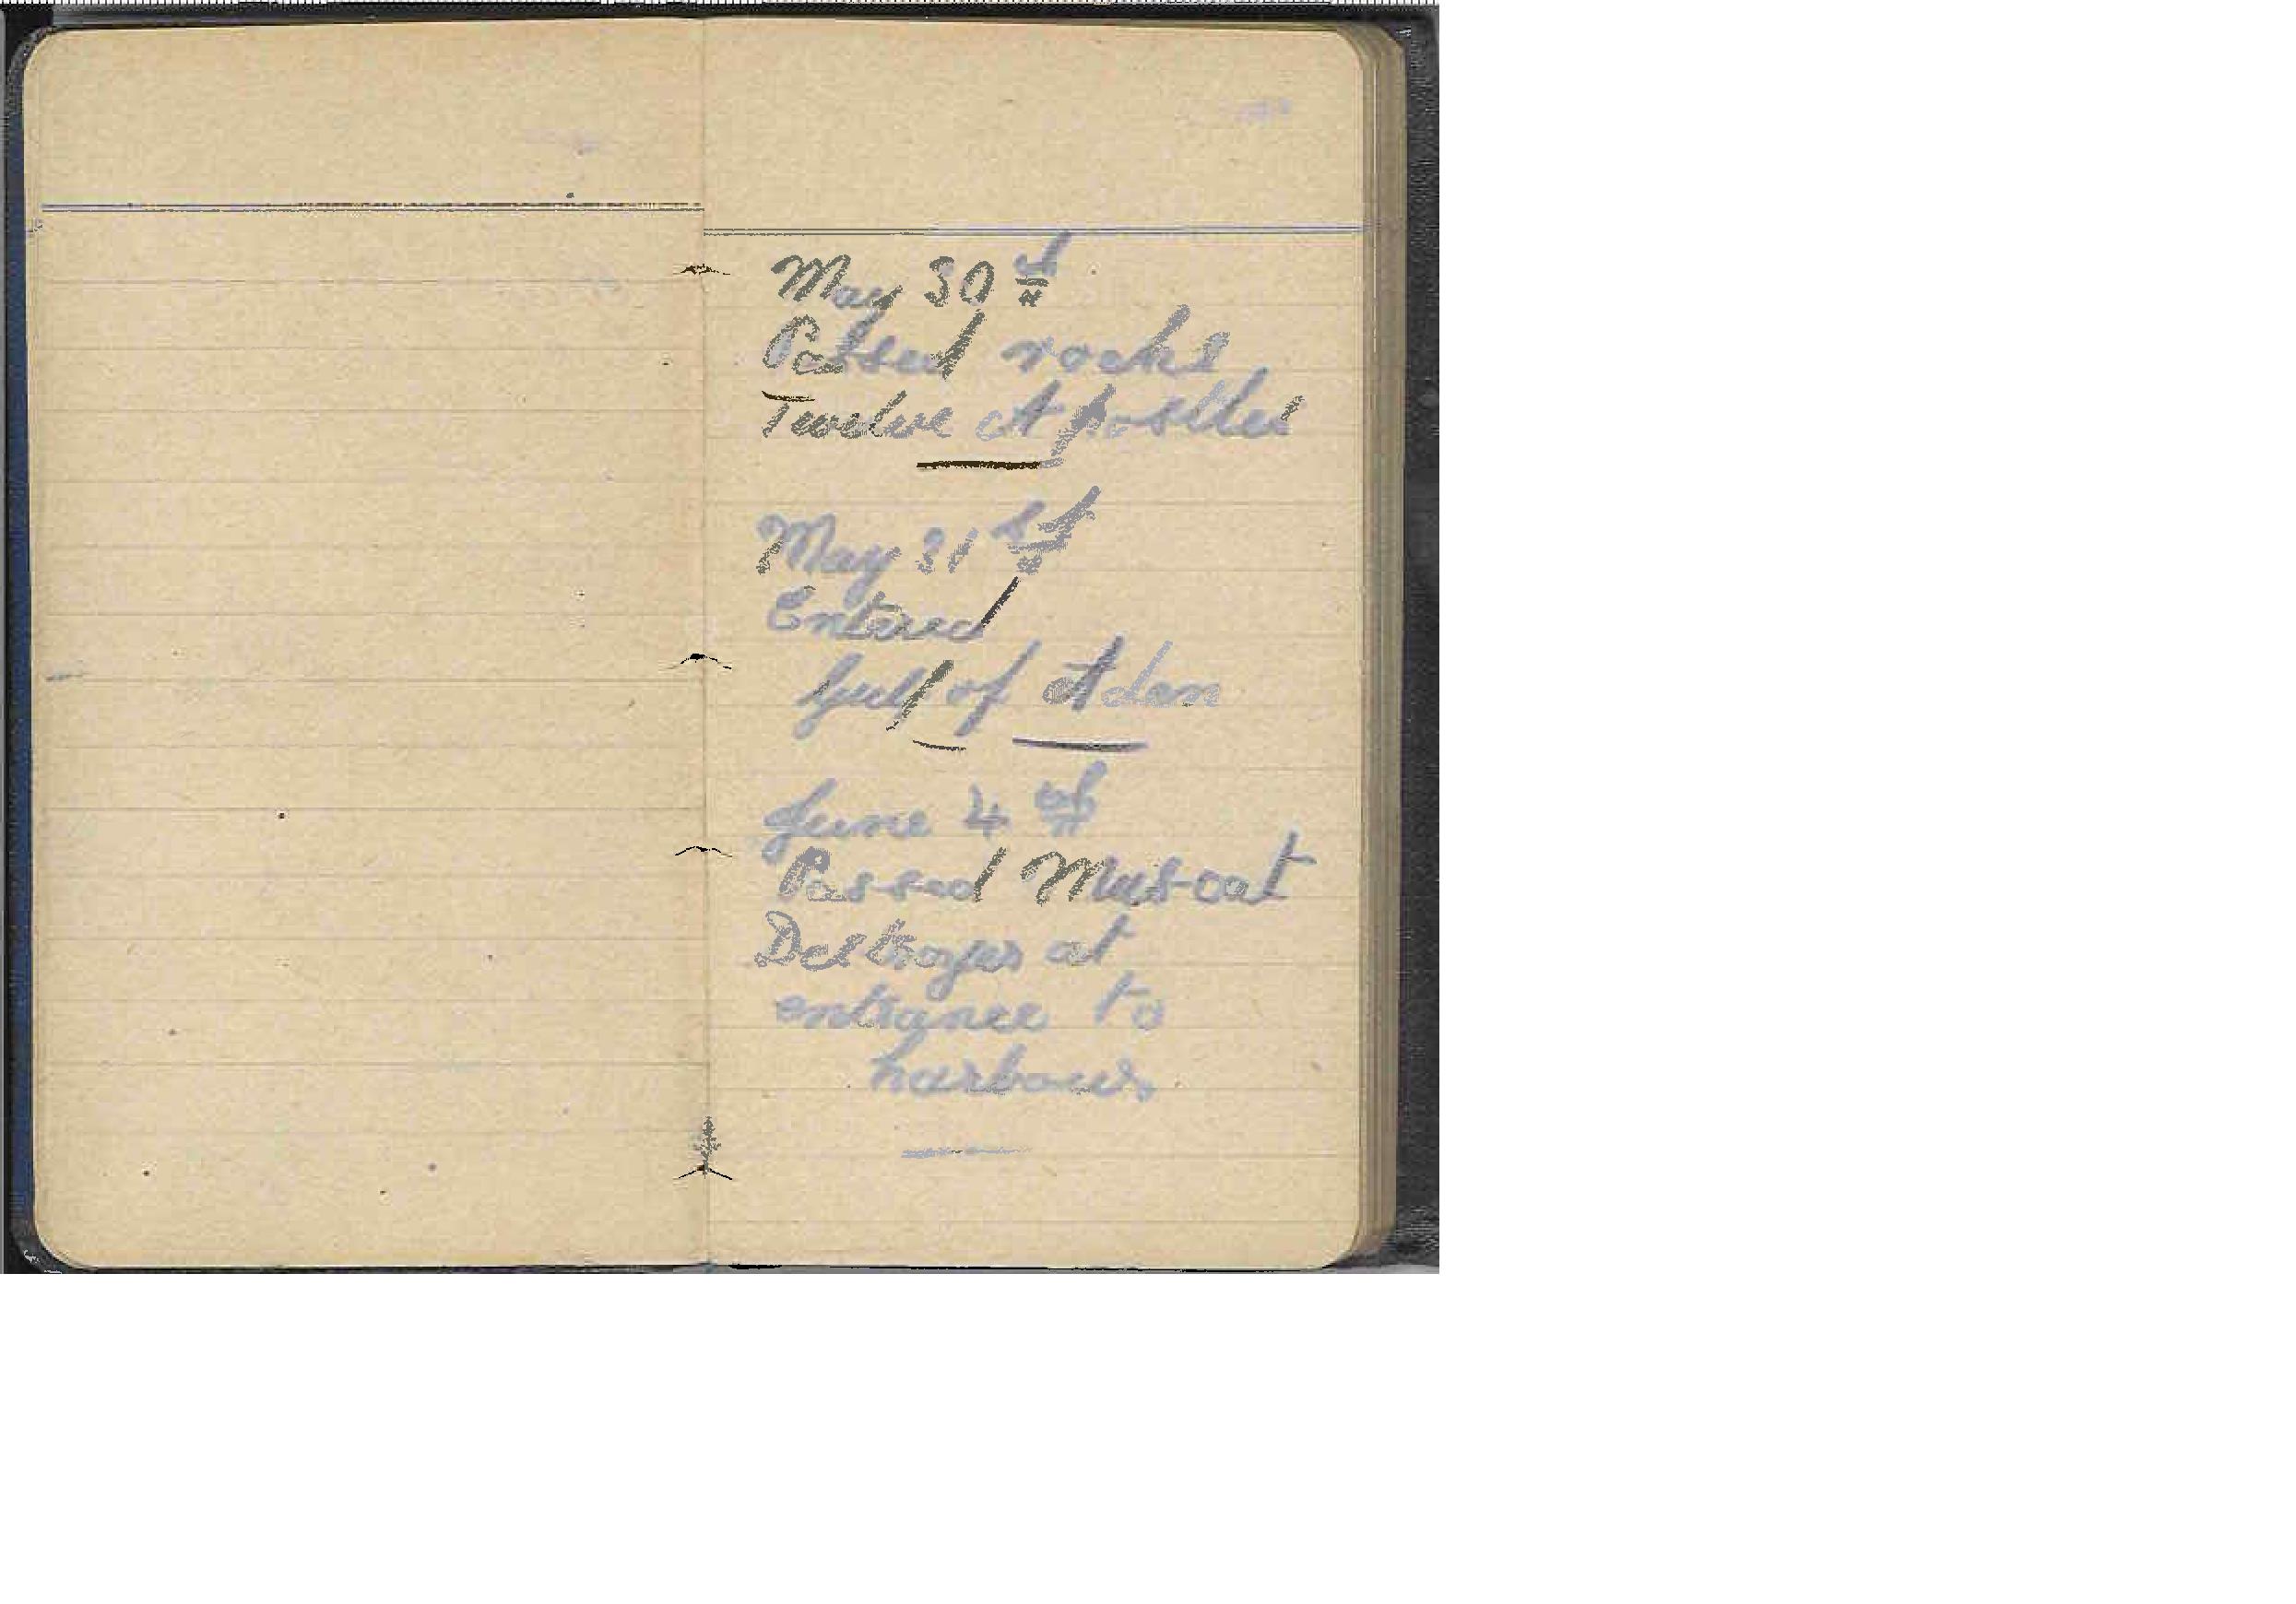 May 30th
Passed rocks
Twelve Apostles
May 31st
Entered
Gulf of Aden
June 4th
Passed Muscat
Destroyer at
entrance to
harbour